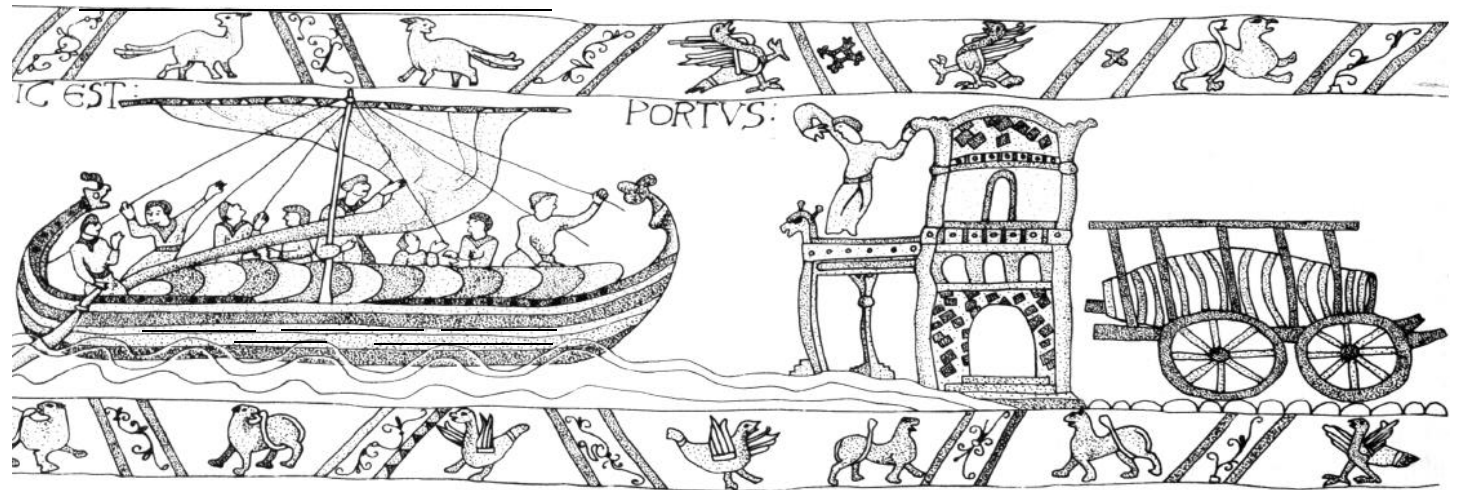 IC EST:
PORTVS: